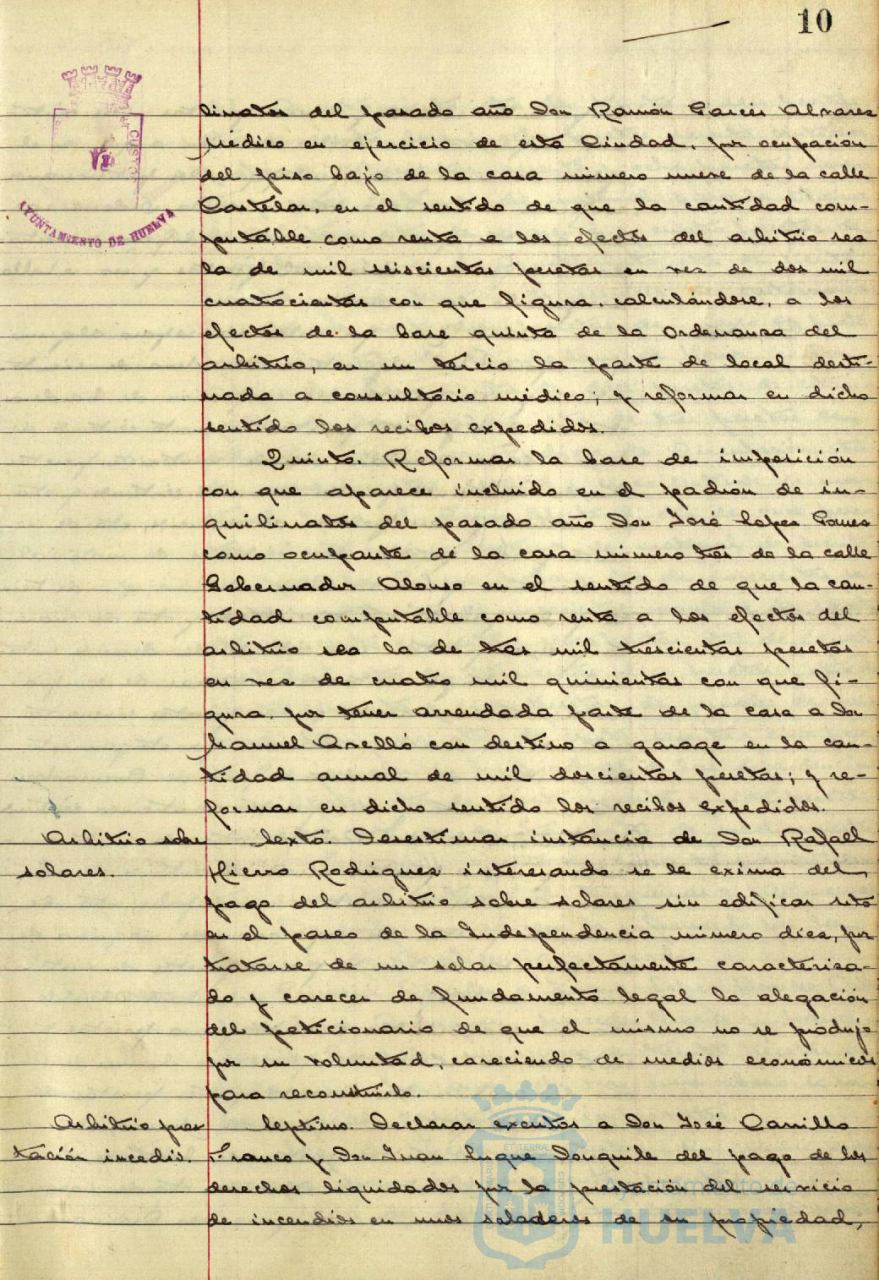 10
AYUNTAMIENTO DE HUELVA
linatos del pasado año Don Ramón Garcés Alvarez
Médico en ejercicio de esta Ciudad, por ocupación
del piso bajo de la casa número nueve de la calle
Castelar, en el sentido de que la cantidad com-
putable como renta a los efectos del arbitrio sea
la de mil seiscientas pesetas en vez de dos mil
cuatrocientas con que figura, calculándose, a los
efectos de la base quinta de la Ordenanza del
arbitrio, en un tercio la parte de local desti-
nada a consultorio médico; y reformar en dicho
sentido los recibos expedidos.
Quinto. Reformar la base de imposición
con que aparece incluido en el padrón de in-
quilinatos del pasado año Don José Lopez Gomez
como ocupante de la casa número tres de la calle
Gobernador Alonso en el sentido de que la can-
tidad computable como renta a los efectos del
arbitrio sea la de tres mil trescientas pesetas
en vez de cuatro mil quinientas con que fi-
gura, por tener arrendada parte de la casa a Don
Manuel Arelló con destino a garage en la can-
tidad anual de mil doscientas pesetas; y re-
formar en dicho sentido los recibos expedidos.
Arbitrio sobre
solares.
Sexto. Desestimar instancia de Don Rafael
Hierro Rodriguez interesando se le exima del
pago del arbitrio sobre solares sin edificar sito
en el paseo de la Independencia número diez, por
tratarse de un solar perfectamente caracteriza-
do y carecer de fundamento legal la alegación
del peticionario de que el mismo no se produjo
por su voluntad, careciendo de medios económicos
para reconstruirlo.
Arbitrio pres
tación incedis.
Septimo. Declarar exentos a Don José Carrillo
Franco y Don Juan Luque Donquile del pago de los
derechos liquidados por la prestación del servicio
de incendios en unos saladeros de su propiedad,
HUELVA